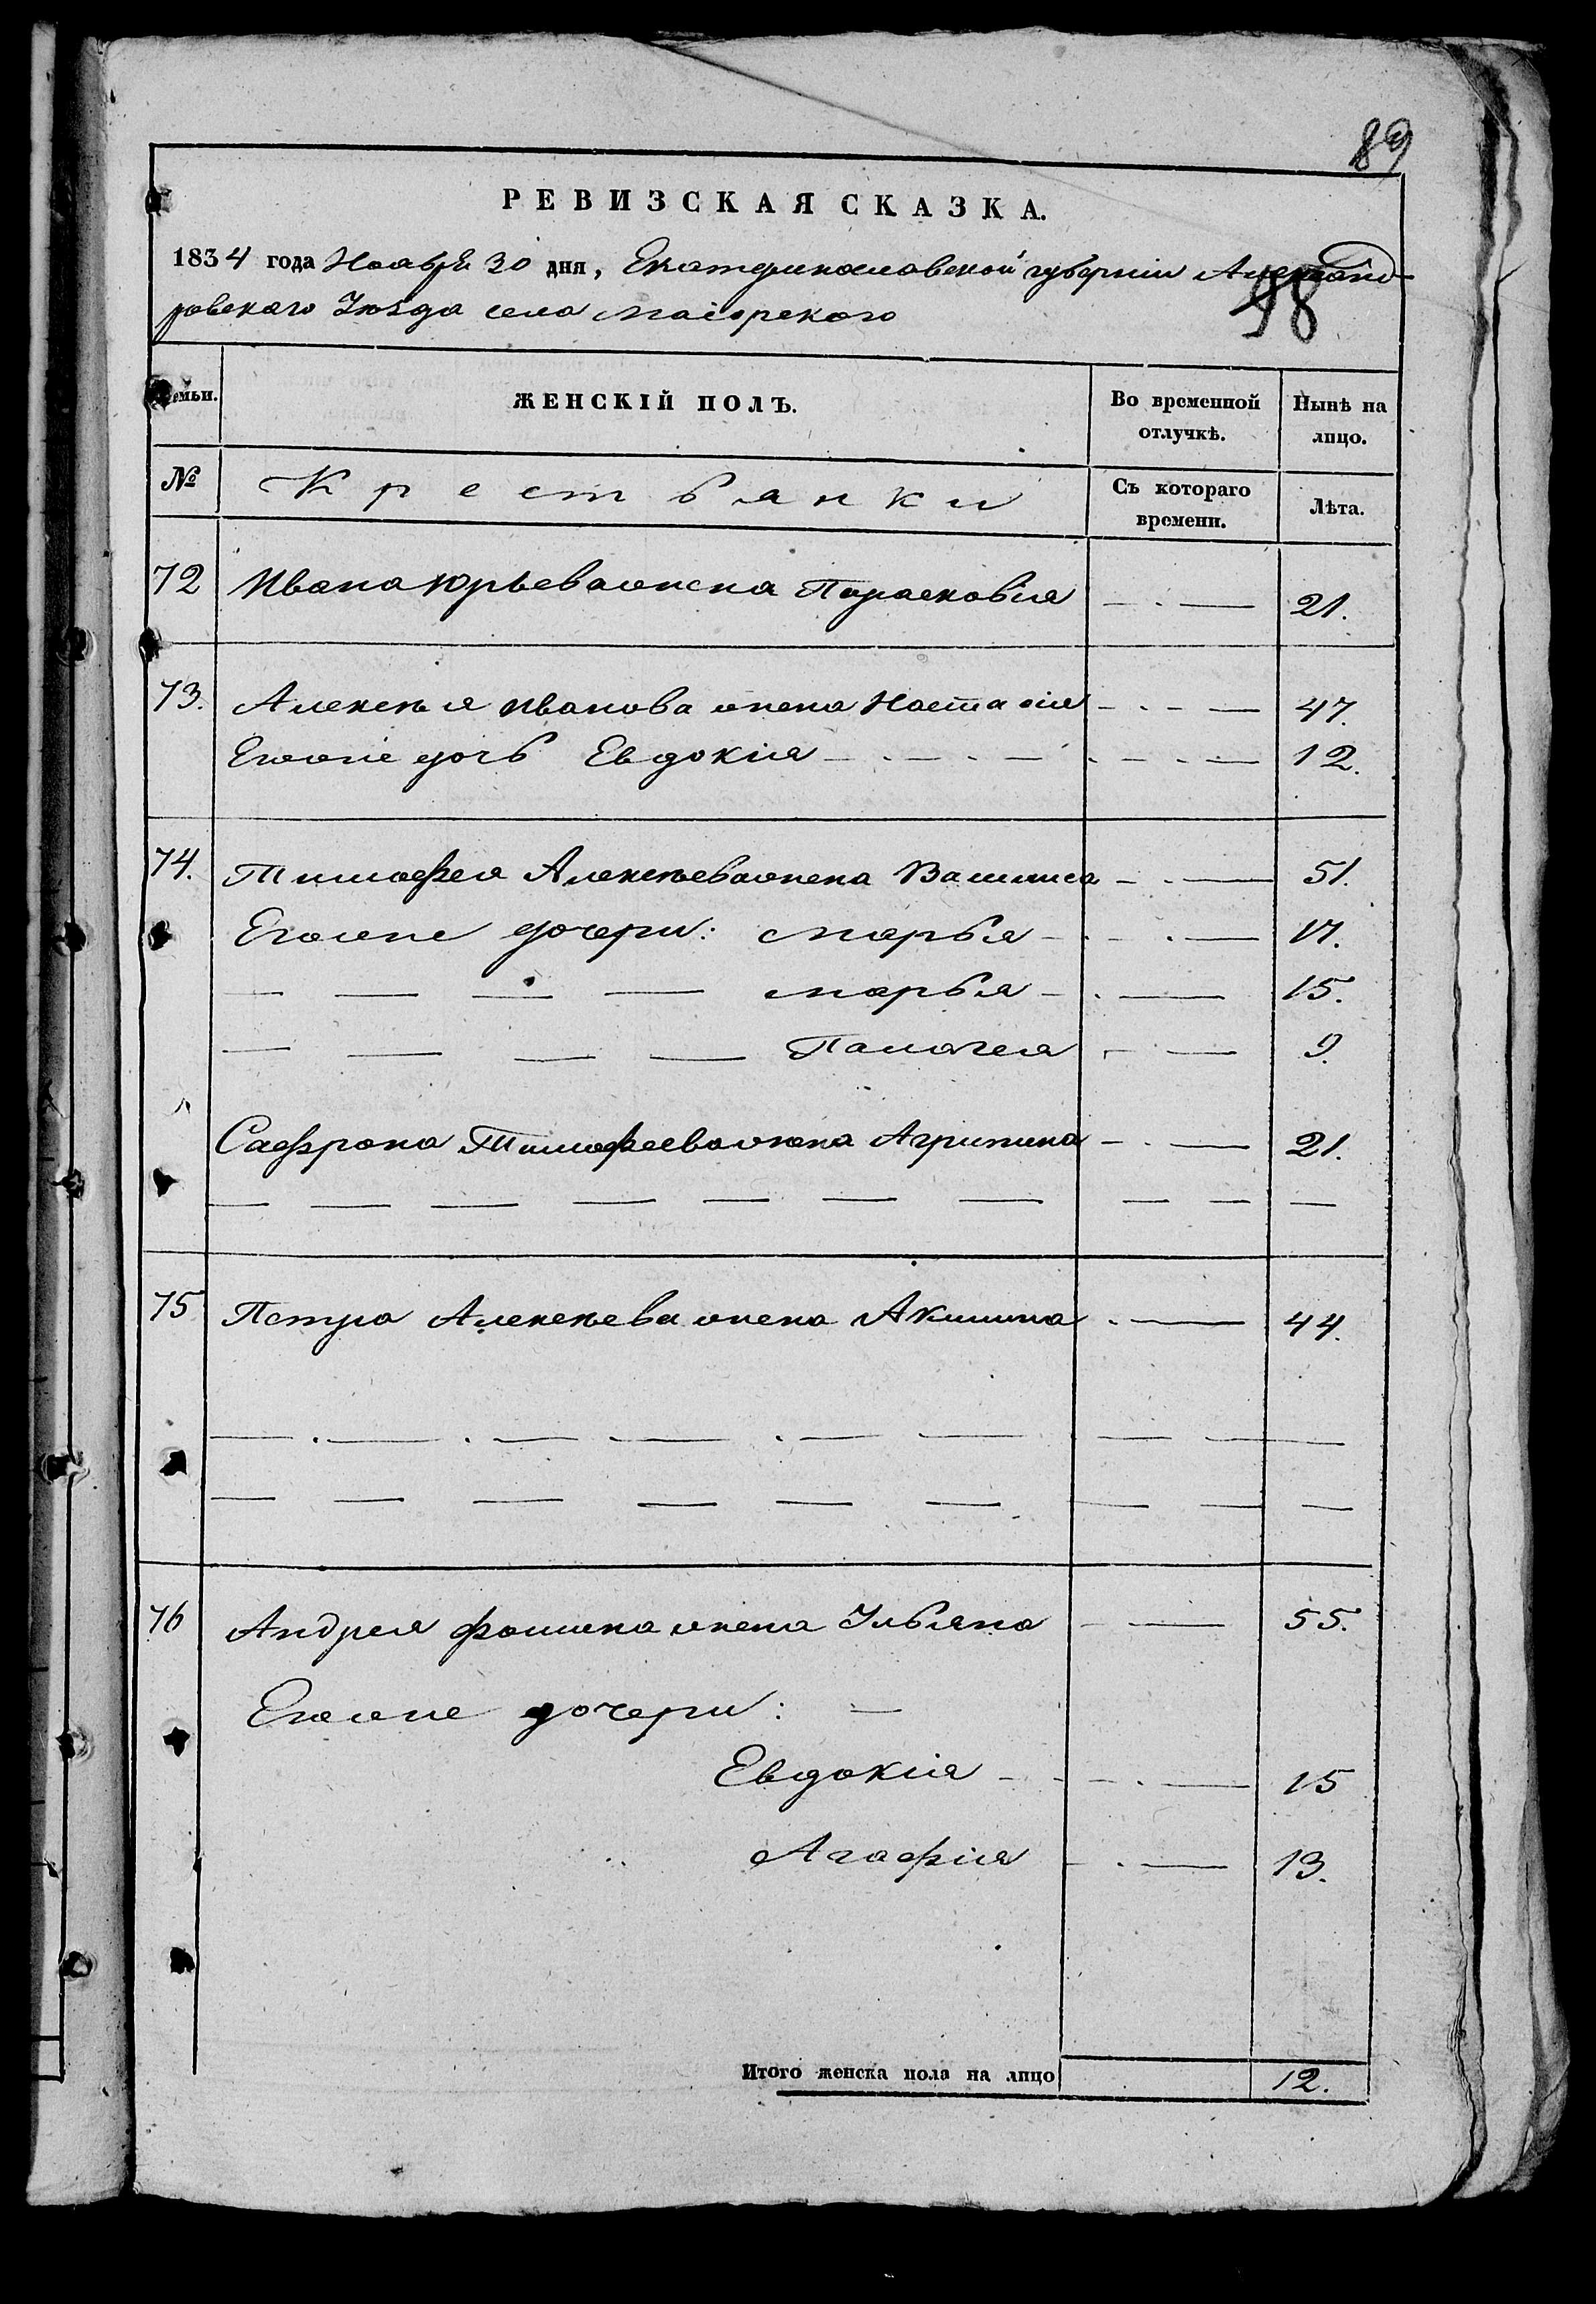 89
РЕВИЗСКАЯ СКАЗКА.
1834 года Ноабря 30 дня, Екатеринославской губернiи Александ-
ровскаго Уѣзда села Маiорскаго
98
Семьи. ЖЕНСКIЙ ПОЛЪ. Во временной отлучкѣ. Нынѣ на лицо.
№ Крестьянки Съ котораго времени. Лѣта.
72 Ивана Юрьева жена Парасковiя — . — 21.
73. Алексѣя Иванова жена Настасiя - . - — 47.
Егоже дочь Евдокiя — . — . — . — . — 12.
74. Тимофея Алексѣева жена Василиса - . — 51.
Егоже дочери: Марья - . — 17.
— — — — Марья - . — 15.
— — — — Палагея - — 9.
Сафрона Тимофеева жена Агрипина - . — 21.
— — — — — — — — — —
75 Петра Алексѣева жена Акилина . — 44.
— . — . — — . — — — — —
— — — — — — — — —
76 Андрея Фомина жена Ульяна - — 55.
Егоже дочери: —
Евдокiя - - . — 15
Агафiя - . — 13.
Итого женска пола на лицо 12.